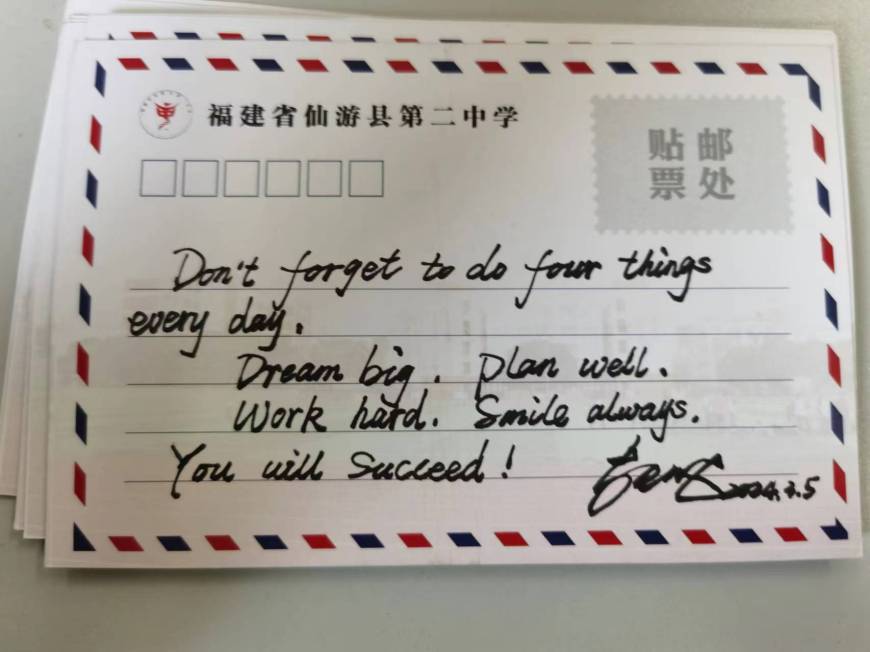 福建省仙游县第二中学
贴邮
票处
Don't forget to do four things
every day.
Dream big. Plan well.
Work hard. Smile always.
You will succeed!
2024.3.5